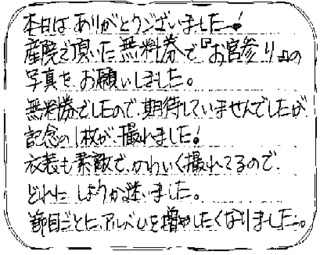 本日は ありがとうございました!
産院で頂いた無料券で『お宮参り』の
写真を お願いしました。
無料券でしたので、期待していませんでしたが
記念の1枚が 撮れました!
衣装も素敵で、かわいく撮れてるので
どれに しようか迷いました。
節目ごとに、アルバムを増やしたくなりました。